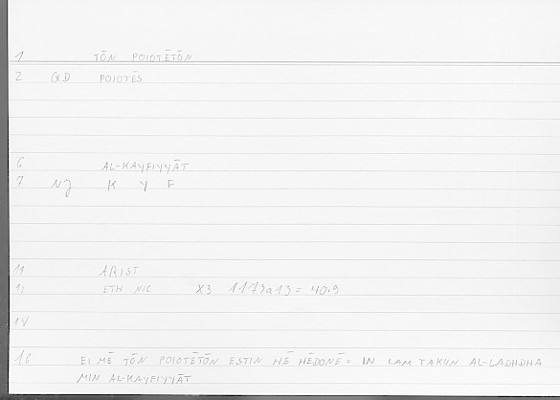 1 TŌN POIOTĒTŌN
2 GD POIOTĒS
6 AL-KAYFIYYĀT
7 NJ K Y F
11 ARIST
12 ETH NIC X3 1173a13 = 401.9
14
16 EI MĒ TŌN POIOTĒTŌN ESTIN HĒ HĒDONĒ = IN LAM TAKUN AL-LADHDHA
MIN AL-KAYFIYYĀT